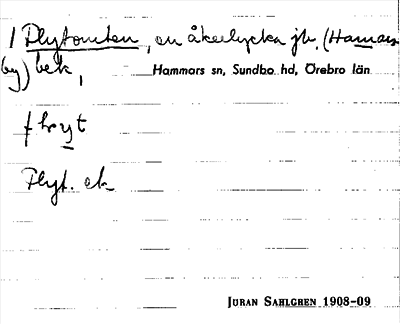 1 Plytomten, en åkerlycka jb. (Hamars
by) bek,
Hammars sn, Sundbo hd, Örebro län
Plyt. ek
JURAN SAHLGREN 1908-09